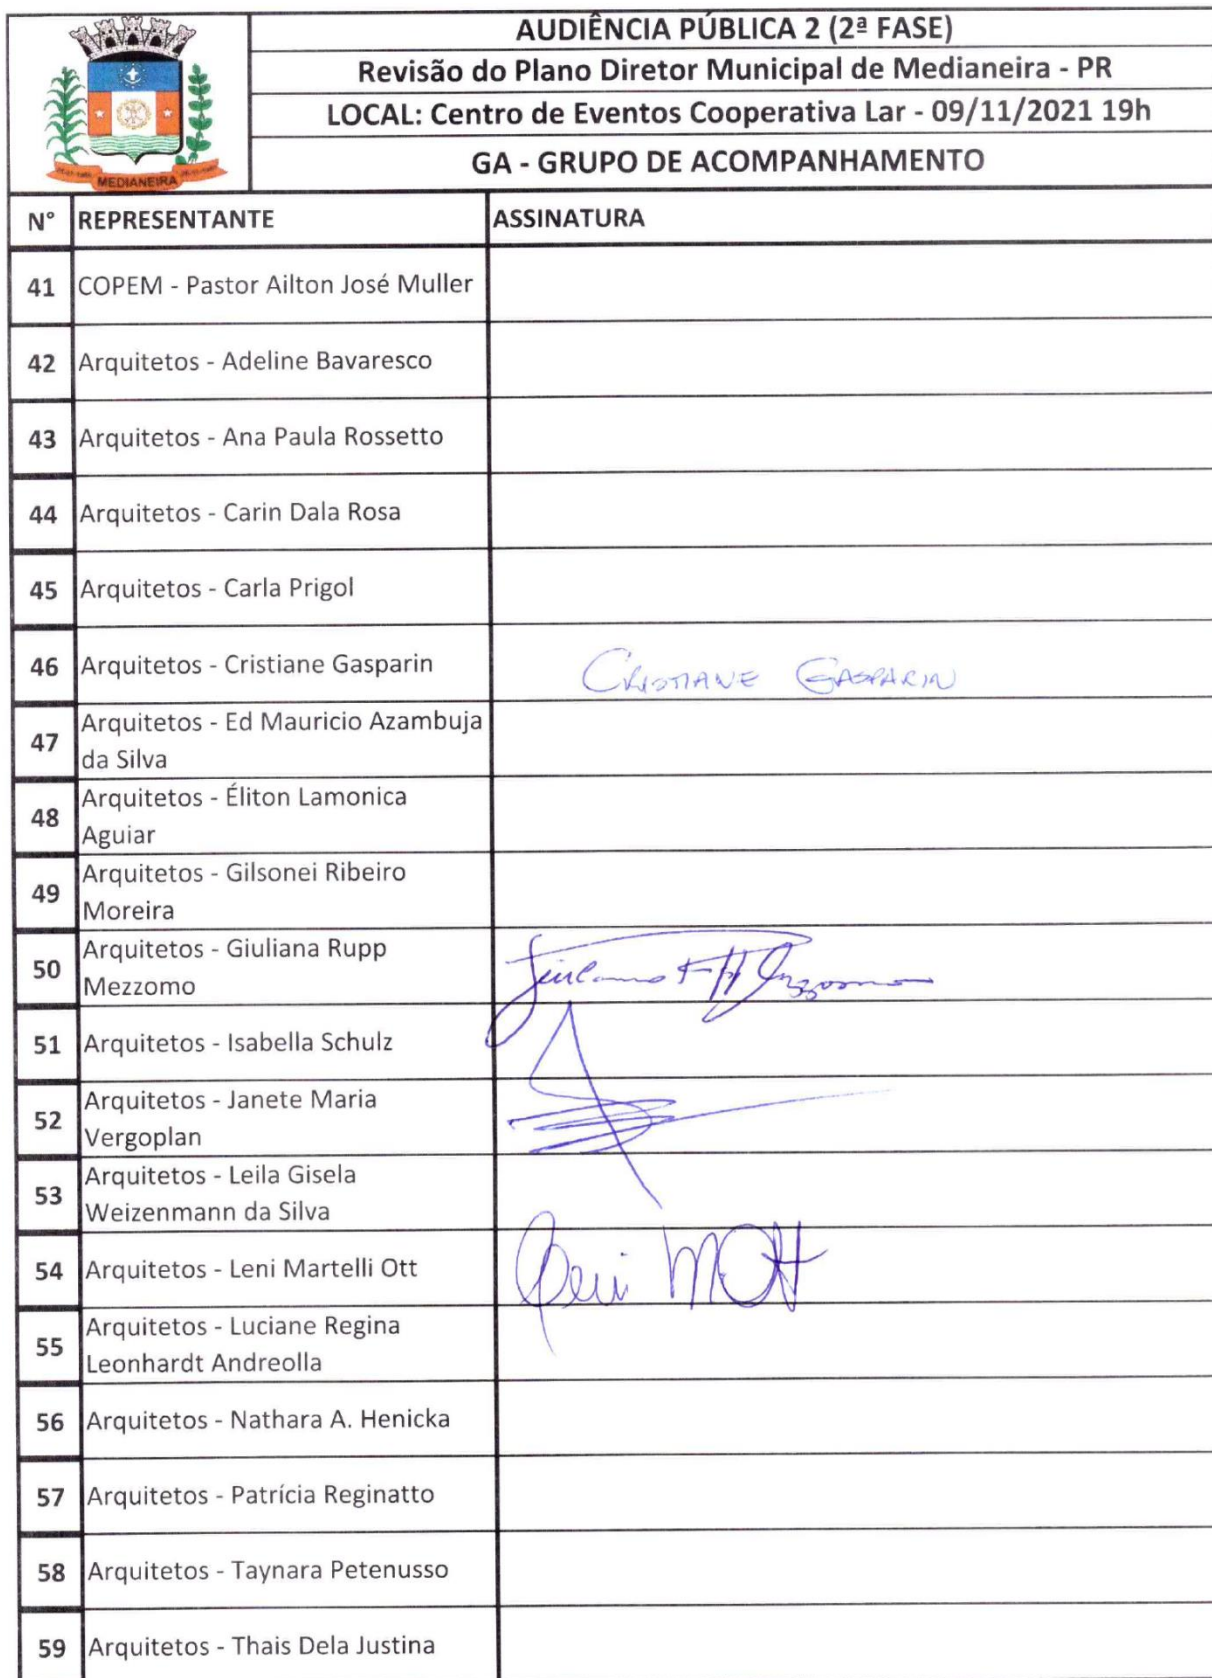 AUDIÊNCIA PÚBLICA 2 (2ª FASE)
Revisão do Plano Diretor Municipal de Medianeira - PR
LOCAL: Centro de Eventos Cooperativa Lar - 09/11/2021 19h
GA - GRUPO DE ACOMPANHAMENTO
MEDIANEIRA
N° REPRESENTANTE ASSINATURA
41 COPEM - Pastor Ailton José Muller
42 Arquitetos - Adeline Bavaresco
43 Arquitetos - Ana Paula Rossetto
44 Arquitetos - Carin Dala Rosa
45 Arquitetos - Carla Prigol
46 Arquitetos - Cristiane Gasparin CRISTIANE GASPARIN
47 Arquitetos - Ed Mauricio Azambuja
da Silva
48 Arquitetos - Éliton Lamonica
Aguiar
49 Arquitetos - Gilsonei Ribeiro
Moreira
50 Arquitetos - Giuliana Rupp
Mezzomo
51 Arquitetos - Isabella Schulz
52 Arquitetos - Janete Maria
Vergoplan
53 Arquitetos - Leila Gisela
Weizenmann da Silva
54 Arquitetos - Leni Martelli Ott Leni MOtt
55 Arquitetos - Luciane Regina
Leonhardt Andreolla
56 Arquitetos - Nathara A. Henicka
57 Arquitetos - Patrícia Reginatto
58 Arquitetos - Taynara Petenusso
59 Arquitetos - Thais Dela Justina